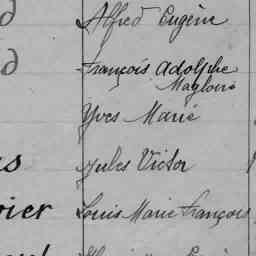 Alfred Eugène
François Adolphe
Magloire
Yves Marie
Jules Victor
Louis Marie François